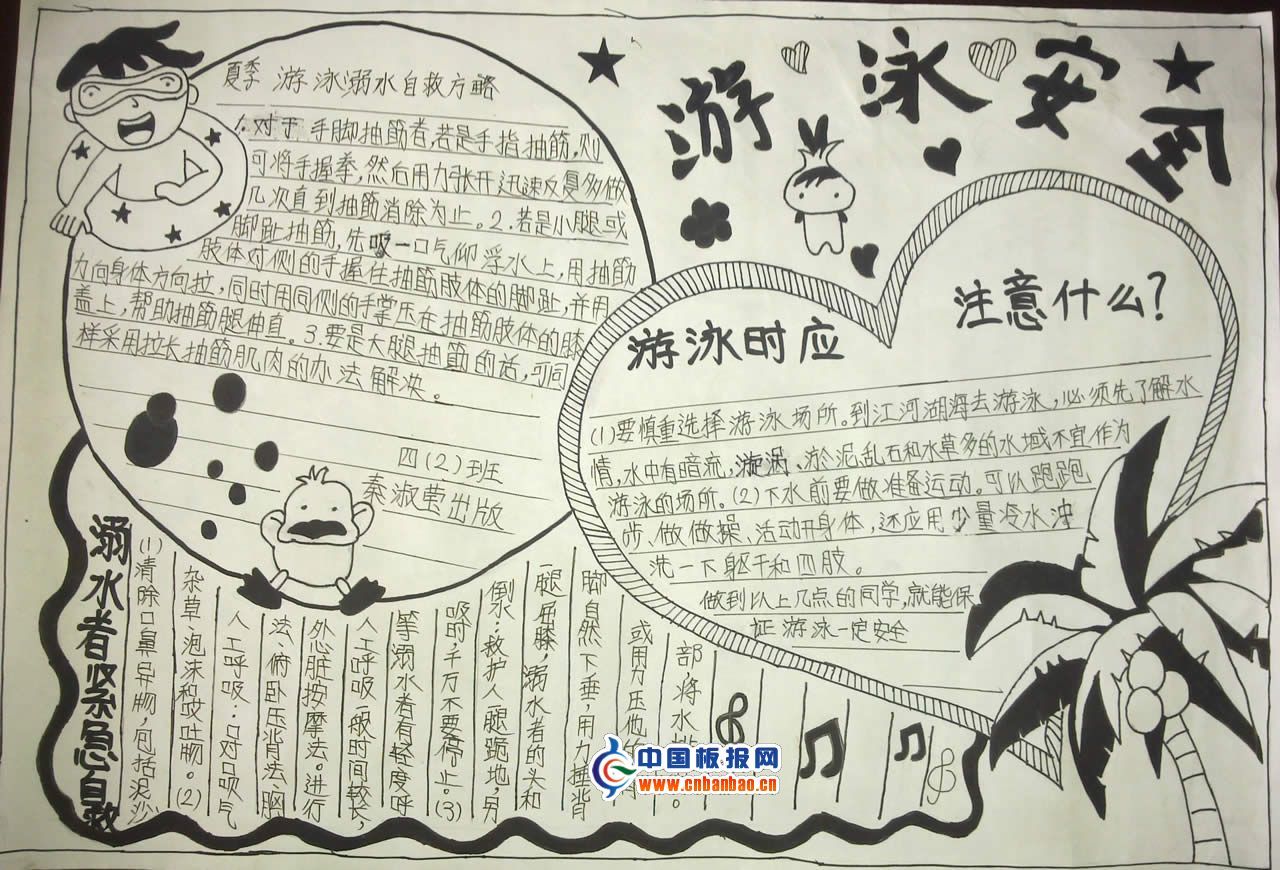 游泳安全
夏季 游泳溺水自救方略
1.对于手脚抽筋者,若是手指抽筋,则
可将手握拳,然后用力张开迅速反复多做
几次直到抽筋消除为止。2.若是小腿或
脚趾抽筋,先吸一口气仰浮水上,用抽筋
肢体对侧的手握住抽筋肢体的脚趾,并用
力向身体方向拉,同时用同侧的手掌压在抽筋肢体的膝
盖上,帮助抽筋腿伸直。3.要是大腿抽筋的话,可同
样采用拉长抽筋肌肉的办法解决。
四(2)班
秦淑莹出版
游泳时应
注意什么?
(1)要慎重选择游泳场所。到江河湖海去游泳,必须先了解水
情,水中有暗流,漩涡、淤泥、乱石和水草多的水域不宜作为
游泳的场所。(2)下水前要做准备运动。可以跑跑
步、做做操、活动开身体,还应用少量冷水冲
洗一下躯干和四肢。
做到以上几点的同学,就能保
证游泳一定安全
溺水者紧急自救
(1)清除口鼻异物,包括泥沙
杂草、泡沫和呕吐物。(2)
人工呼吸:口对口吸气
法、俯卧压背法、胸
外心脏按摩法。进行
人工呼吸一般时间较长,
等溺水者有轻度呼
吸时,千万不要停止。(3)
倒水:救护人一腿跪地,另
一腿屈膝,溺水者的头和
脚自然下垂,用力捶背
或用力压他
部,将水排
中国板报网
www.cnbanbao.cn